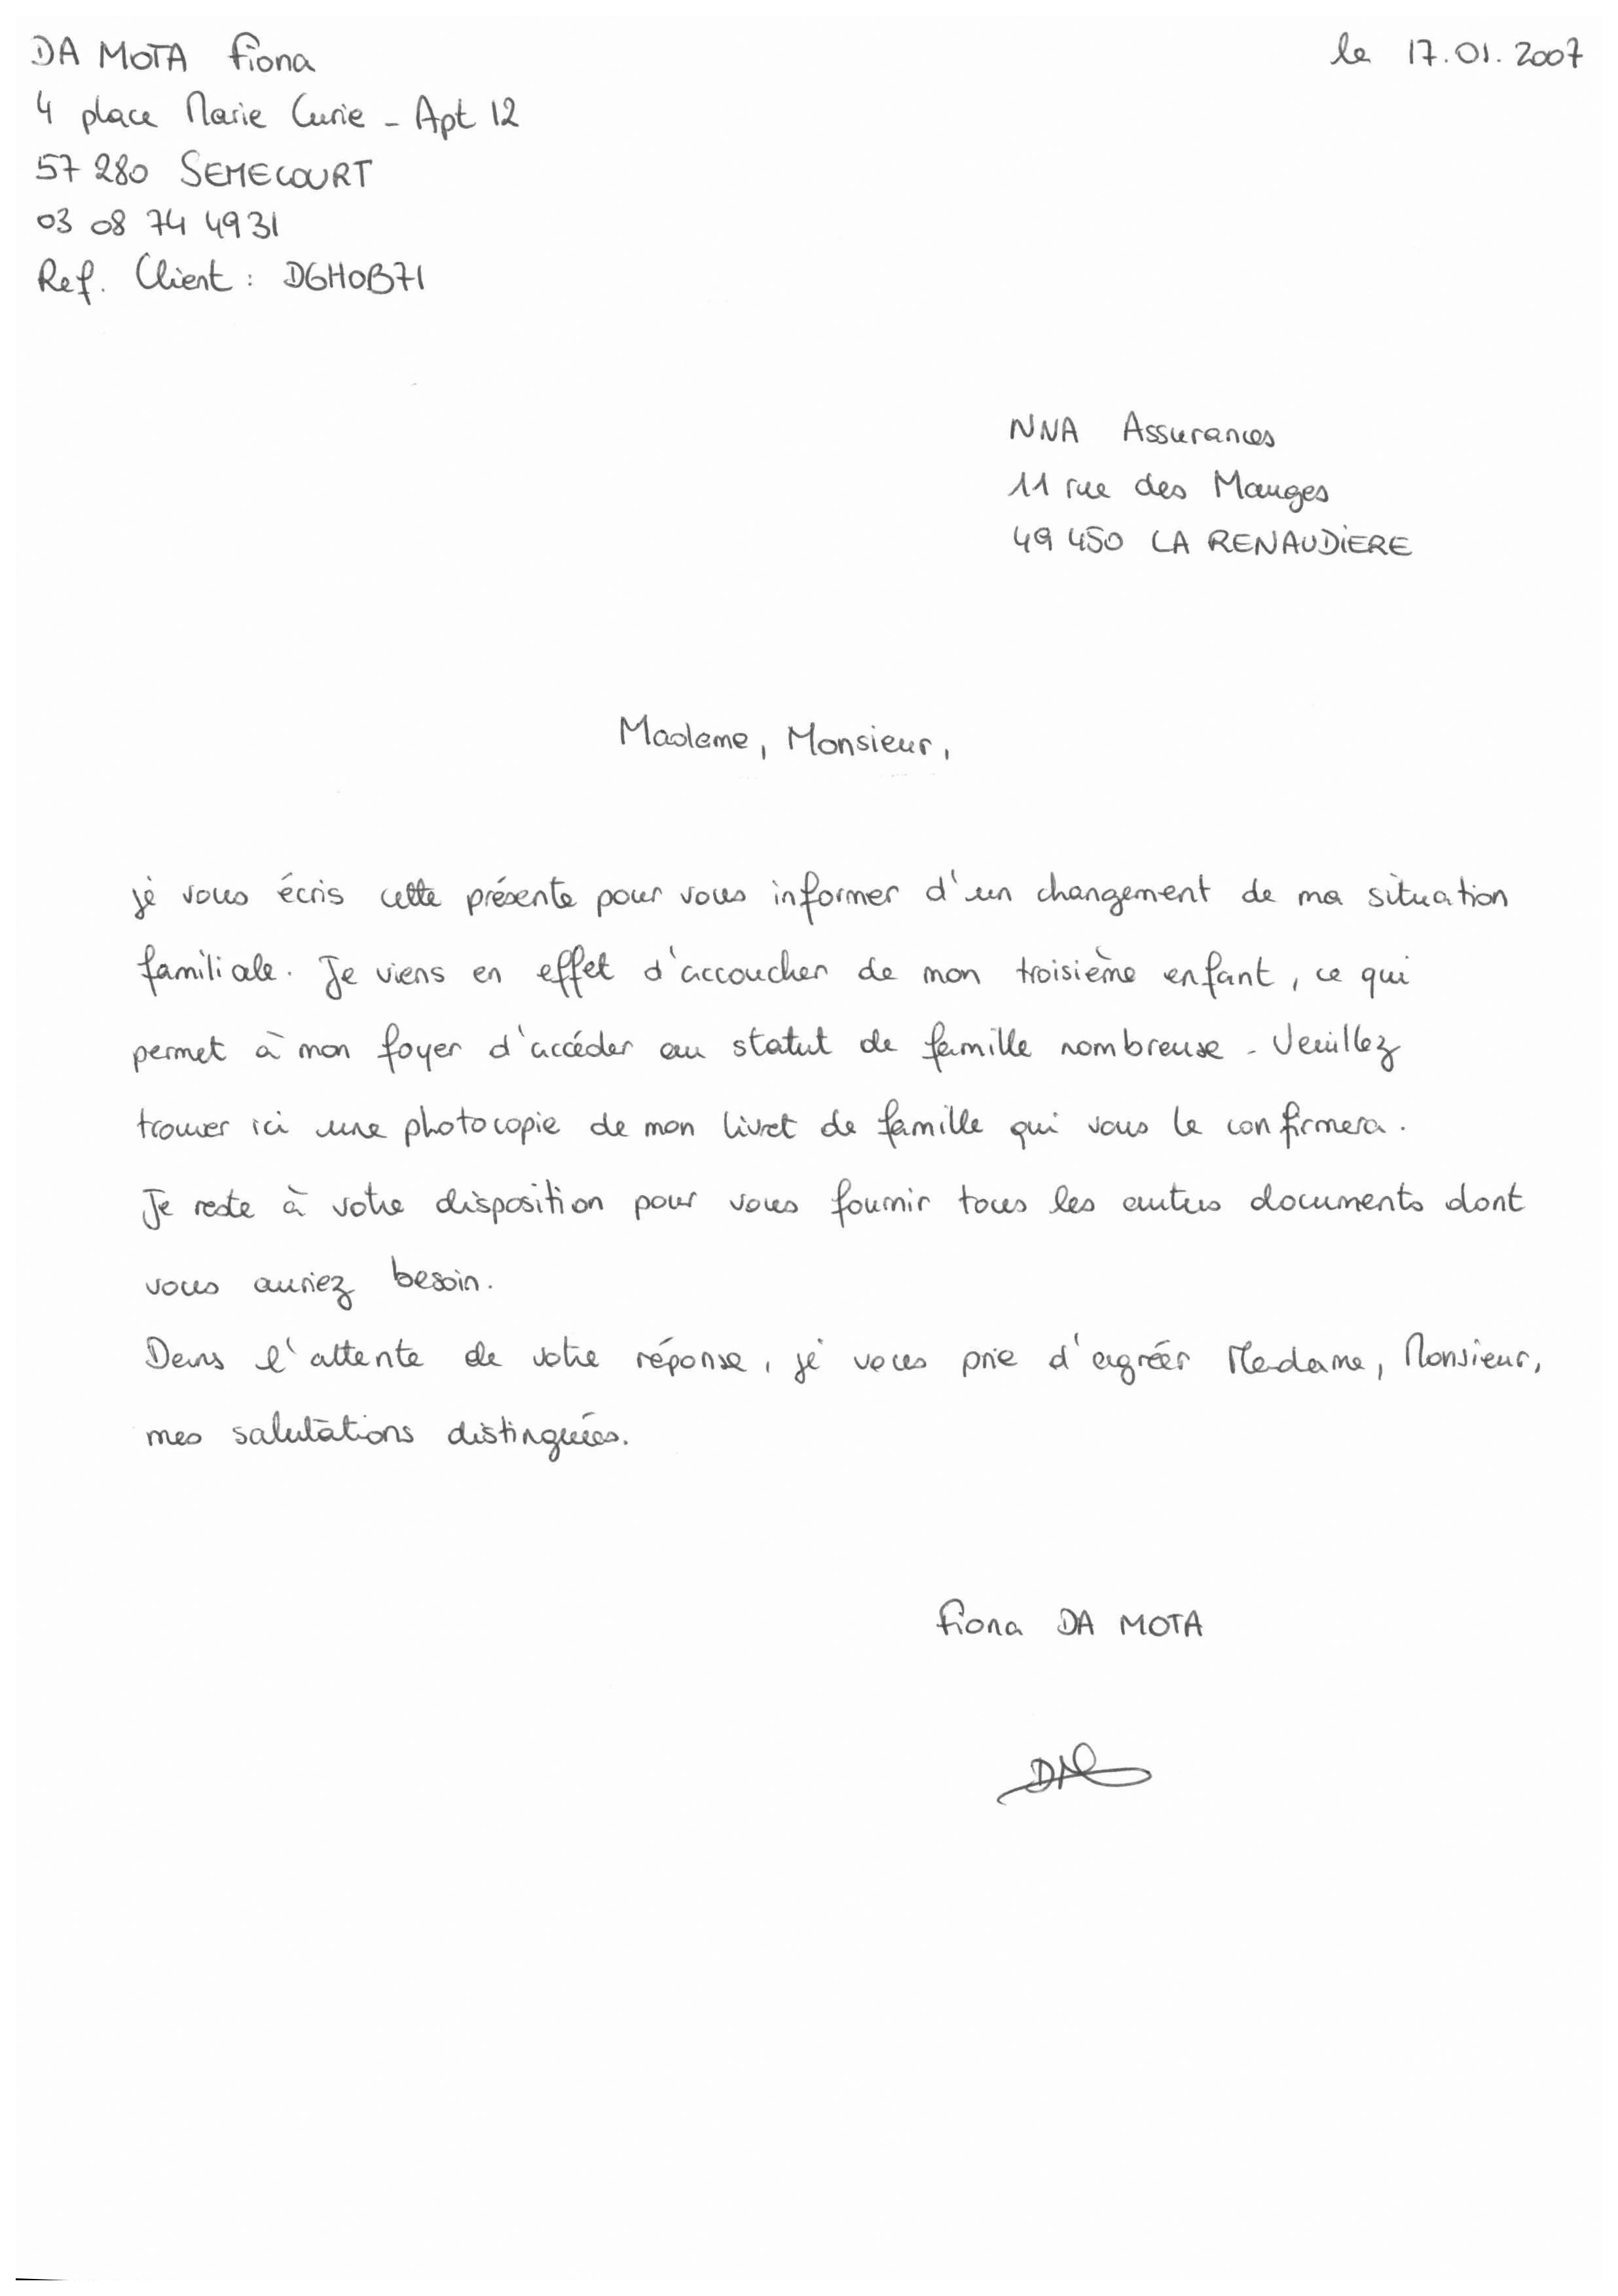 DA MOTA Fiona
le 17.01.2007
4 place Marie Curie - Apt 12
57 280 SEMECOURT
03 08 74 49 31
Ref. Client : DGHOB71
NNA Assurances
11 rue des Mauges
49 450 LA RENAUDIERE
Madame, Monsieur,
je vous écris cette présente pour vous informer d'un changement de ma situation
familiale. Je viens en effet d'accoucher de mon troisième enfant, ce qui
permet à mon foyer d'accéder au statut de famille nombreuse. Veuillez
trouver ici une photocopie de mon livret de famille qui vous le confirmera.
Je reste à votre disposition pour vous fournir tous les autres documents dont
vous auriez besoin.
Dans l'attente de votre réponse, je vous prie d'agréer Madame, Monsieur,
mes salutations distinguées.
Fiona DA MOTA